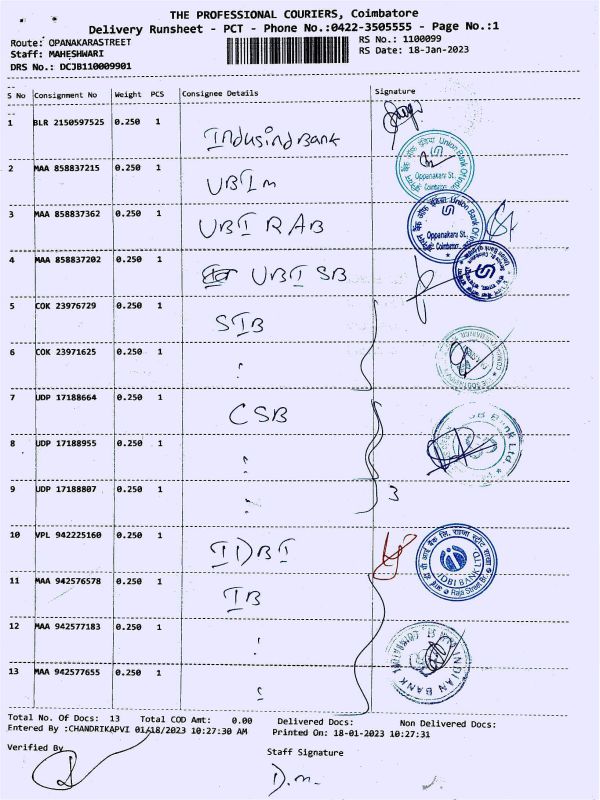 THE PROFESSIONAL COURIERS, Coimbatore
Delivery Runsheet - PCT - Phone No.:0422-3505555 - Page No.:1
Route: OPANAKARASTREET RS No.: 1100099
Staff: MAHESHWARI RS Date: 18-Jan-2023
DRS No.: DCJB110009901
S No Consignment No Weight PCS Consignee Details Signature
1 BLR 2150597525 0.250 1 IndusindBank
2 MAA 858837215 0.250 1 UBI m
Union Bank Of India
Oppanakara St.
Coimbatore
3 MAA 858837362 0.250 1 UBI RAB
Union Bank Of India
Oppanakara St.
Coimbatore
4 MAA 858837202 0.250 1 UBI SB
5 COK 23976729 0.250 1 SIB
6 COK 23971625 0.250 1
7 UDP 17188664 0.250 1 CSB
CSB Bank Ltd.
8 UDP 17188955 0.250 1
9 UDP 17188807 0.250 1 3
10 VPL 942225160 0.250 1 IDBI
IDBI BANK LTD
Raja Street Br.
11 MAA 942576578 0.250 1 IB
12 MAA 942577183 0.250 1
INDIAN BANK
13 MAA 942577655 0.250 1
Total No. Of Docs: 13 Total COD Amt: 0.00 Delivered Docs: Non Delivered Docs:
Entered By :CHANDRIKAPVI 01/18/2023 10:27:30 AM Printed On: 18-01-2023 10:27:31
Verified By Staff Signature
D.m.